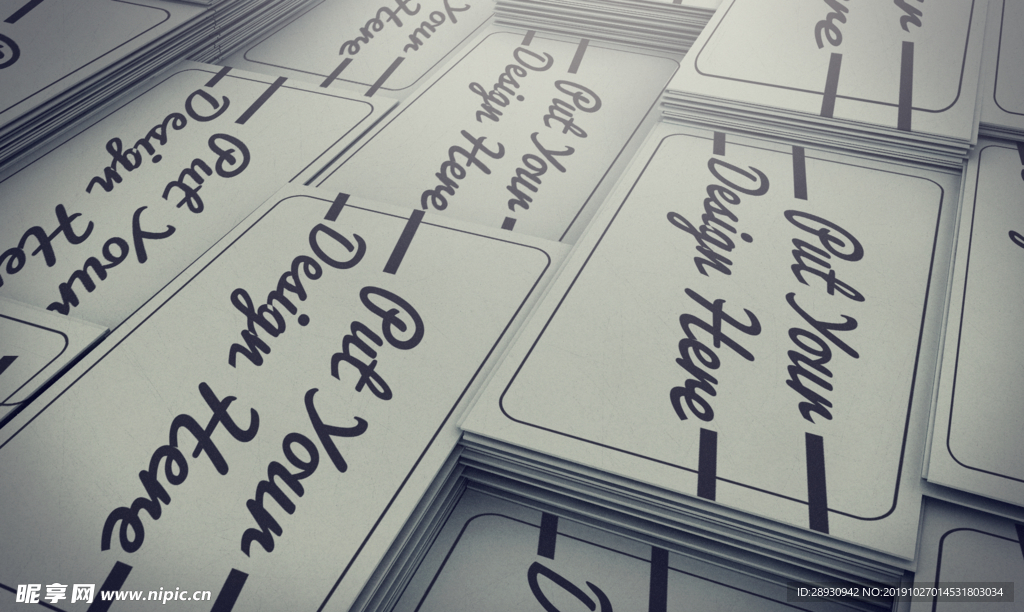 Your
Here
Put Your
Design Here
Put Your
Design Here
Put Your
Design Here
Put Your
Design Here
昵享网 www.nipic.cn
ID:28930942 NO:20191027014531803034